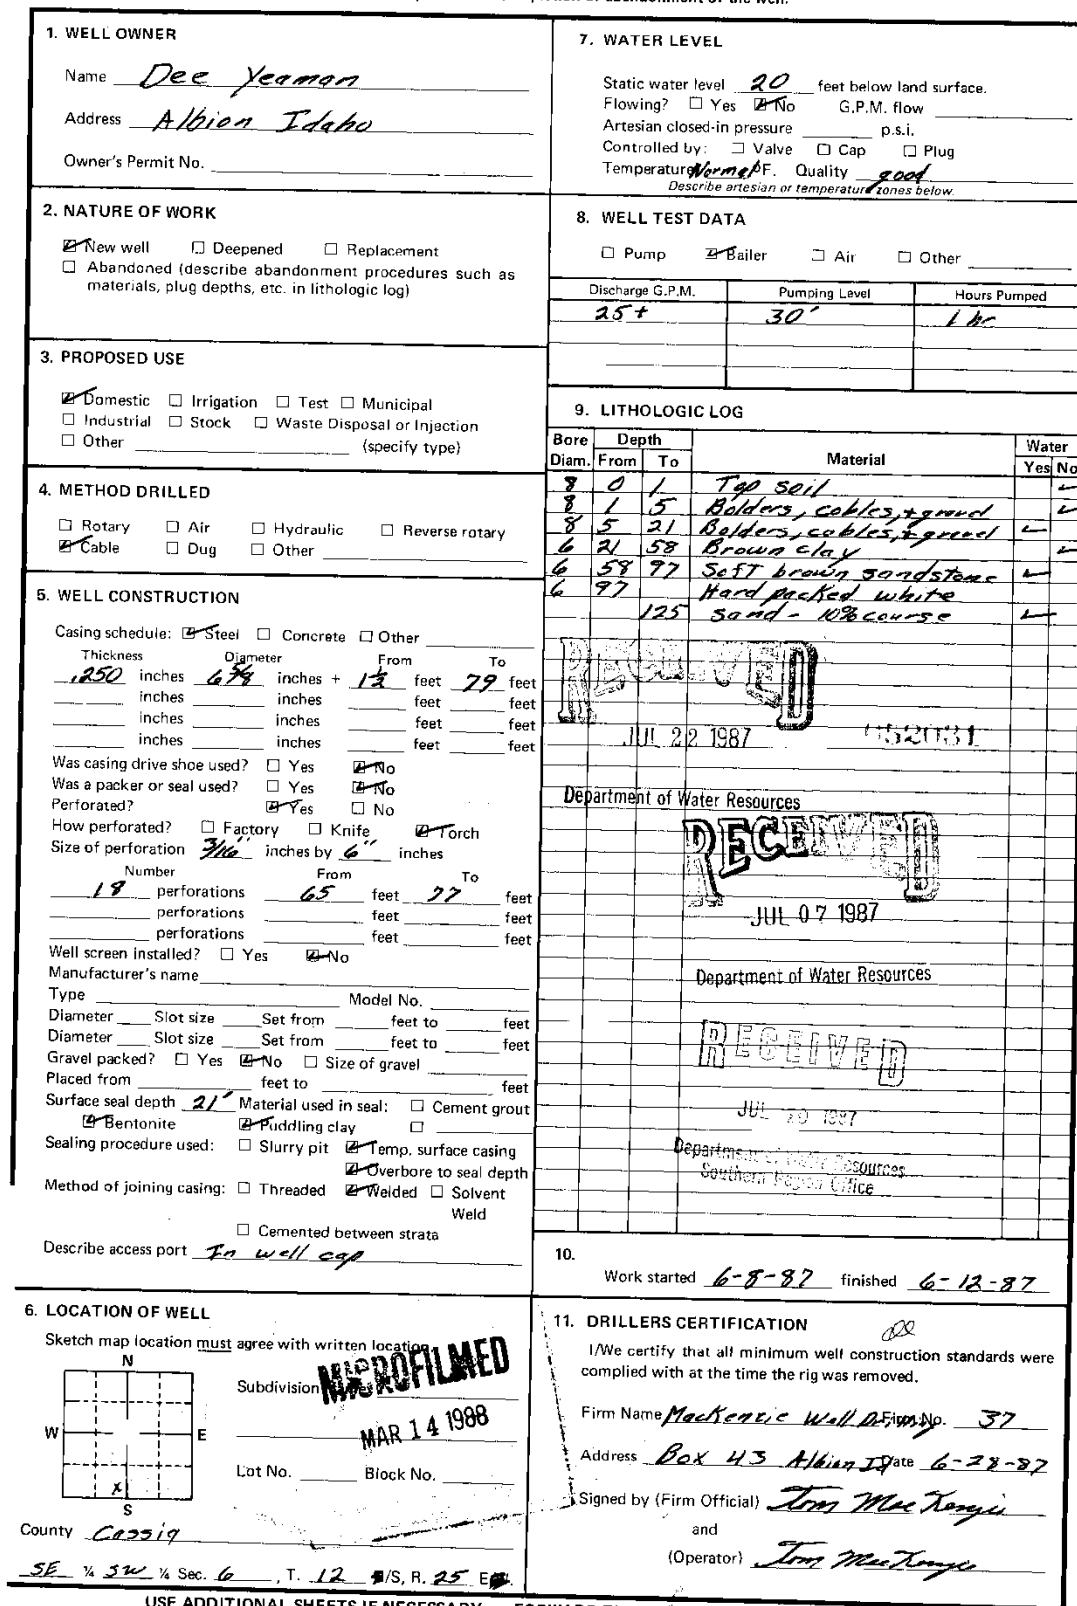 1. WELL OWNER
Name Dee Yeaman
Address Albion Idaho
Owner's Permit No.
2. NATURE OF WORK
☑ New well ☐ Deepened ☐ Replacement
☐ Abandoned (describe abandonment procedures such as
materials, plug depths, etc. in lithologic log)
3. PROPOSED USE
☑ Domestic ☐ Irrigation ☐ Test ☐ Municipal
☐ Industrial ☐ Stock ☐ Waste Disposal or Injection
☐ Other (specify type)
4. METHOD DRILLED
☐ Rotary ☐ Air ☐ Hydraulic ☐ Reverse rotary
☑ Cable ☐ Dug ☐ Other
5. WELL CONSTRUCTION
Casing schedule: ☑ Steel ☐ Concrete ☐ Other
Thickness Diameter From To
.250 inches 6 5/8 inches + 1 1/2 feet 79 feet
inches inches feet feet
inches inches feet feet
inches inches feet feet
Was casing drive shoe used? ☐ Yes ☑ No
Was a packer or seal used? ☐ Yes ☑ No
Perforated? ☑ Yes ☐ No
How perforated? ☐ Factory ☐ Knife ☑ Torch
Size of perforation 3/16" inches by 6" inches
Number From To
18 perforations 65 feet 77 feet
perforations feet feet
perforations feet feet
Well screen installed? ☐ Yes ☑ No
Manufacturer's name
Type Model No.
Diameter Slot size Set from feet to feet
Diameter Slot size Set from feet to feet
Gravel packed? ☐ Yes ☑ No ☐ Size of gravel
Placed from feet to feet
Surface seal depth 21' Material used in seal: ☐ Cement grout
☑ Bentonite ☑ Puddling clay ☐
Sealing procedure used: ☐ Slurry pit ☑ Temp. surface casing
☑ Overbore to seal depth
Method of joining casing: ☐ Threaded ☑ Welded ☐ Solvent
Weld
☐ Cemented between strata
Describe access port In well cap
6. LOCATION OF WELL
Sketch map location must agree with written location.
N
W E
X
S
Subdivision
MICROFILMED
MAR 14 1988
Lot No. Block No.
County Cassia
SE ¼ SW ¼ Sec. 6, T. 12 /S, R. 25 E
7. WATER LEVEL
Static water level 20 feet below land surface.
Flowing? ☐ Yes ☑ No G.P.M. flow
Artesian closed-in pressure p.s.i.
Controlled by: ☐ Valve ☐ Cap ☐ Plug
Temperature Normal °F. Quality good
Describe artesian or temperature zones below.
8. WELL TEST DATA
☐ Pump ☑ Bailer ☐ Air ☐ Other
Discharge G.P.M. Pumping Level Hours Pumped
25+ 30' 1 hr
9. LITHOLOGIC LOG
Bore Depth Water
Diam. From To Material Yes No
8 0 1 Top soil ✓
8 1 5 Bolders, cobles, + gravel ✓
8 5 21 Bolders, cobles, + gravel ✓
6 21 58 Brown clay ✓
6 58 97 Soft brown sandstone ✓
6 97 Hard packed white
125 sand - 10% course ✓
RECEIVED
JUL 22 1987 052031
Department of Water Resources
RECEIVED
JUL 07 1987
Department of Water Resources
RECEIVED
JUL 20 1987
Department of Water Resources
Southern Region Office
10.
Work started 6-8-87 finished 6-12-87
11. DRILLERS CERTIFICATION
I/We certify that all minimum well construction standards were
complied with at the time the rig was removed.
Firm Name MacKenzie Well Firm No. 37
Address Box 43 Albion Id Date 6-28-87
Signed by (Firm Official) Tom MacKenzie
and
(Operator) Tom MacKenzie